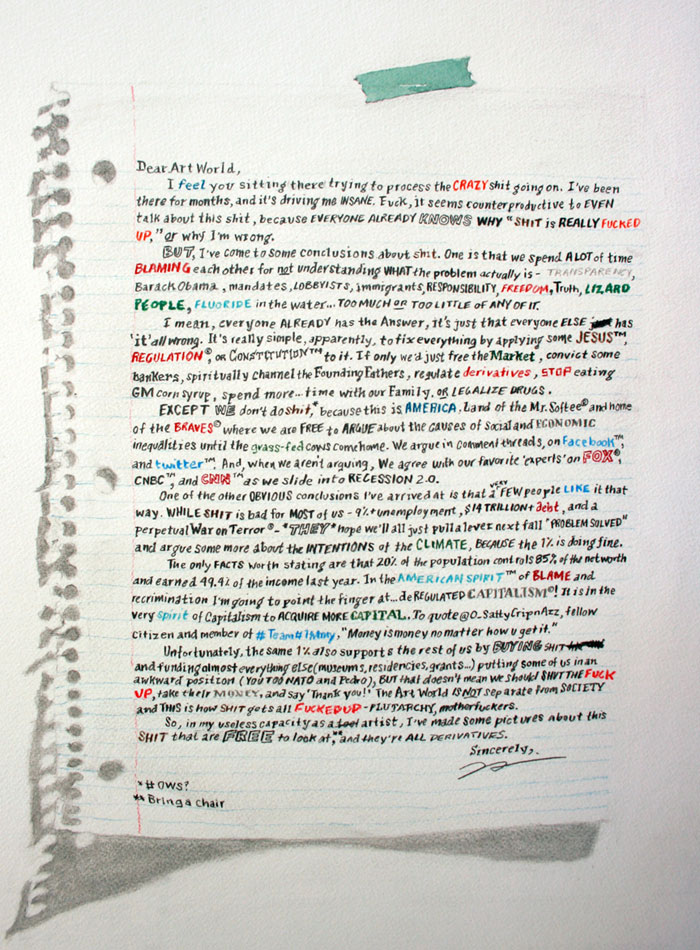 Dear Art World,
I feel you sitting there trying to process the CRAZY shit going on. I've been
there for months, and it's driving me INSANE. Fuck, it seems counterproductive to EVEN
talk about this shit, because EVERYONE ALREADY KNOWS WHY "SHIT is REALLY FUCKED
UP," or why I'm wrong.
BUT, I've come to some conclusions about shit. One is that we spend A LOT of time
BLAMING each other for not understanding WHAT the problem actually is - TRANSPARENCY,
Barack Obama, mandates, LOBBYISTS, immigrants, RESPONSIBILITY, FREEDOM, Truth, LIZARD
PEOPLE, FLUORIDE in the water... TOO MUCH OR TOO LITTLE OF ANY OF IT.
I mean, everyone ALREADY has the Answer, it's just that everyone ELSE has
'it' all wrong. It's really simple, apparently, to fix everything by applying some JESUS™,
REGULATION©, or CONSTITUTION™ to it. If only we'd just free the Market, convict some
bankers, spiritually channel the Founding Fathers, regulate derivatives, STOP eating
GM corn syrup, spend more... time with our Family. OR LEGALIZE DRUGS.
EXCEPT WE don't do shit,* because this is AMERICA. Land of the Mr. Softee© and home
of the BRAVES© where we are FREE to ARGUE about the CAUSES of Social and ECONOMIC
inequalities until the grass-fed cows come home. We argue in comment threads, on Facebook™,
and twitter™. And, when we aren't arguing, We agree with our favorite 'experts' on FOX©,
CNBC™, and CNN™ as we slide into RECESSION 2.0.
One of the other OBVIOUS conclusions I've arrived at is that a VERY FEW people LIKE it that
way. WHILE SHIT is bad for MOST of us - 9% unemployment, $14 TRILLION+ debt, and a
perpetual War on Terror© - *THEY* hope we'll all just pull a lever next fall "PROBLEM SOLVED"
and argue some more about the INTENTIONS of the CLIMATE, BECAUSE the 1% is doing fine.
The only FACTS worth stating are that 20% of the population controls 85% of the networth
and earned 49.4% of the income last year. In the AMERICAN SPIRIT™ of BLAME and
recrimination I'm going to point the finger at... de REGULATED CAPITALISM©! It is in the
very spirit of Capitalism to ACQUIRE MORE CAPITAL. To quote @O_SaltyCripnAzz, fellow
citizen and member of #Team#1Mmy, "Money is money no matter how u get it."
Unfortunately, the same 1% also supports the rest of us by BUYING SHIT
and funding almost everything else (museums, residencies, grants...) putting some of us in an
awkward position (YOU TOO NATO and Pedro), BUT that doesn't mean we should SHUT THE FUCK
UP, take their MONEY, and say 'Thank you!' The Art World IS NOT separate from SOCIETY
and THIS is how SHIT gets all FUCKED UP - PLUTARCHY, motherfuckers.
So, in my useless capacity as a artist, I've made some pictures about this
SHIT that are FREE to look at,** and they're ALL DERIVATIVES.
Sincerely,
*#OWS?
**Bring a chair